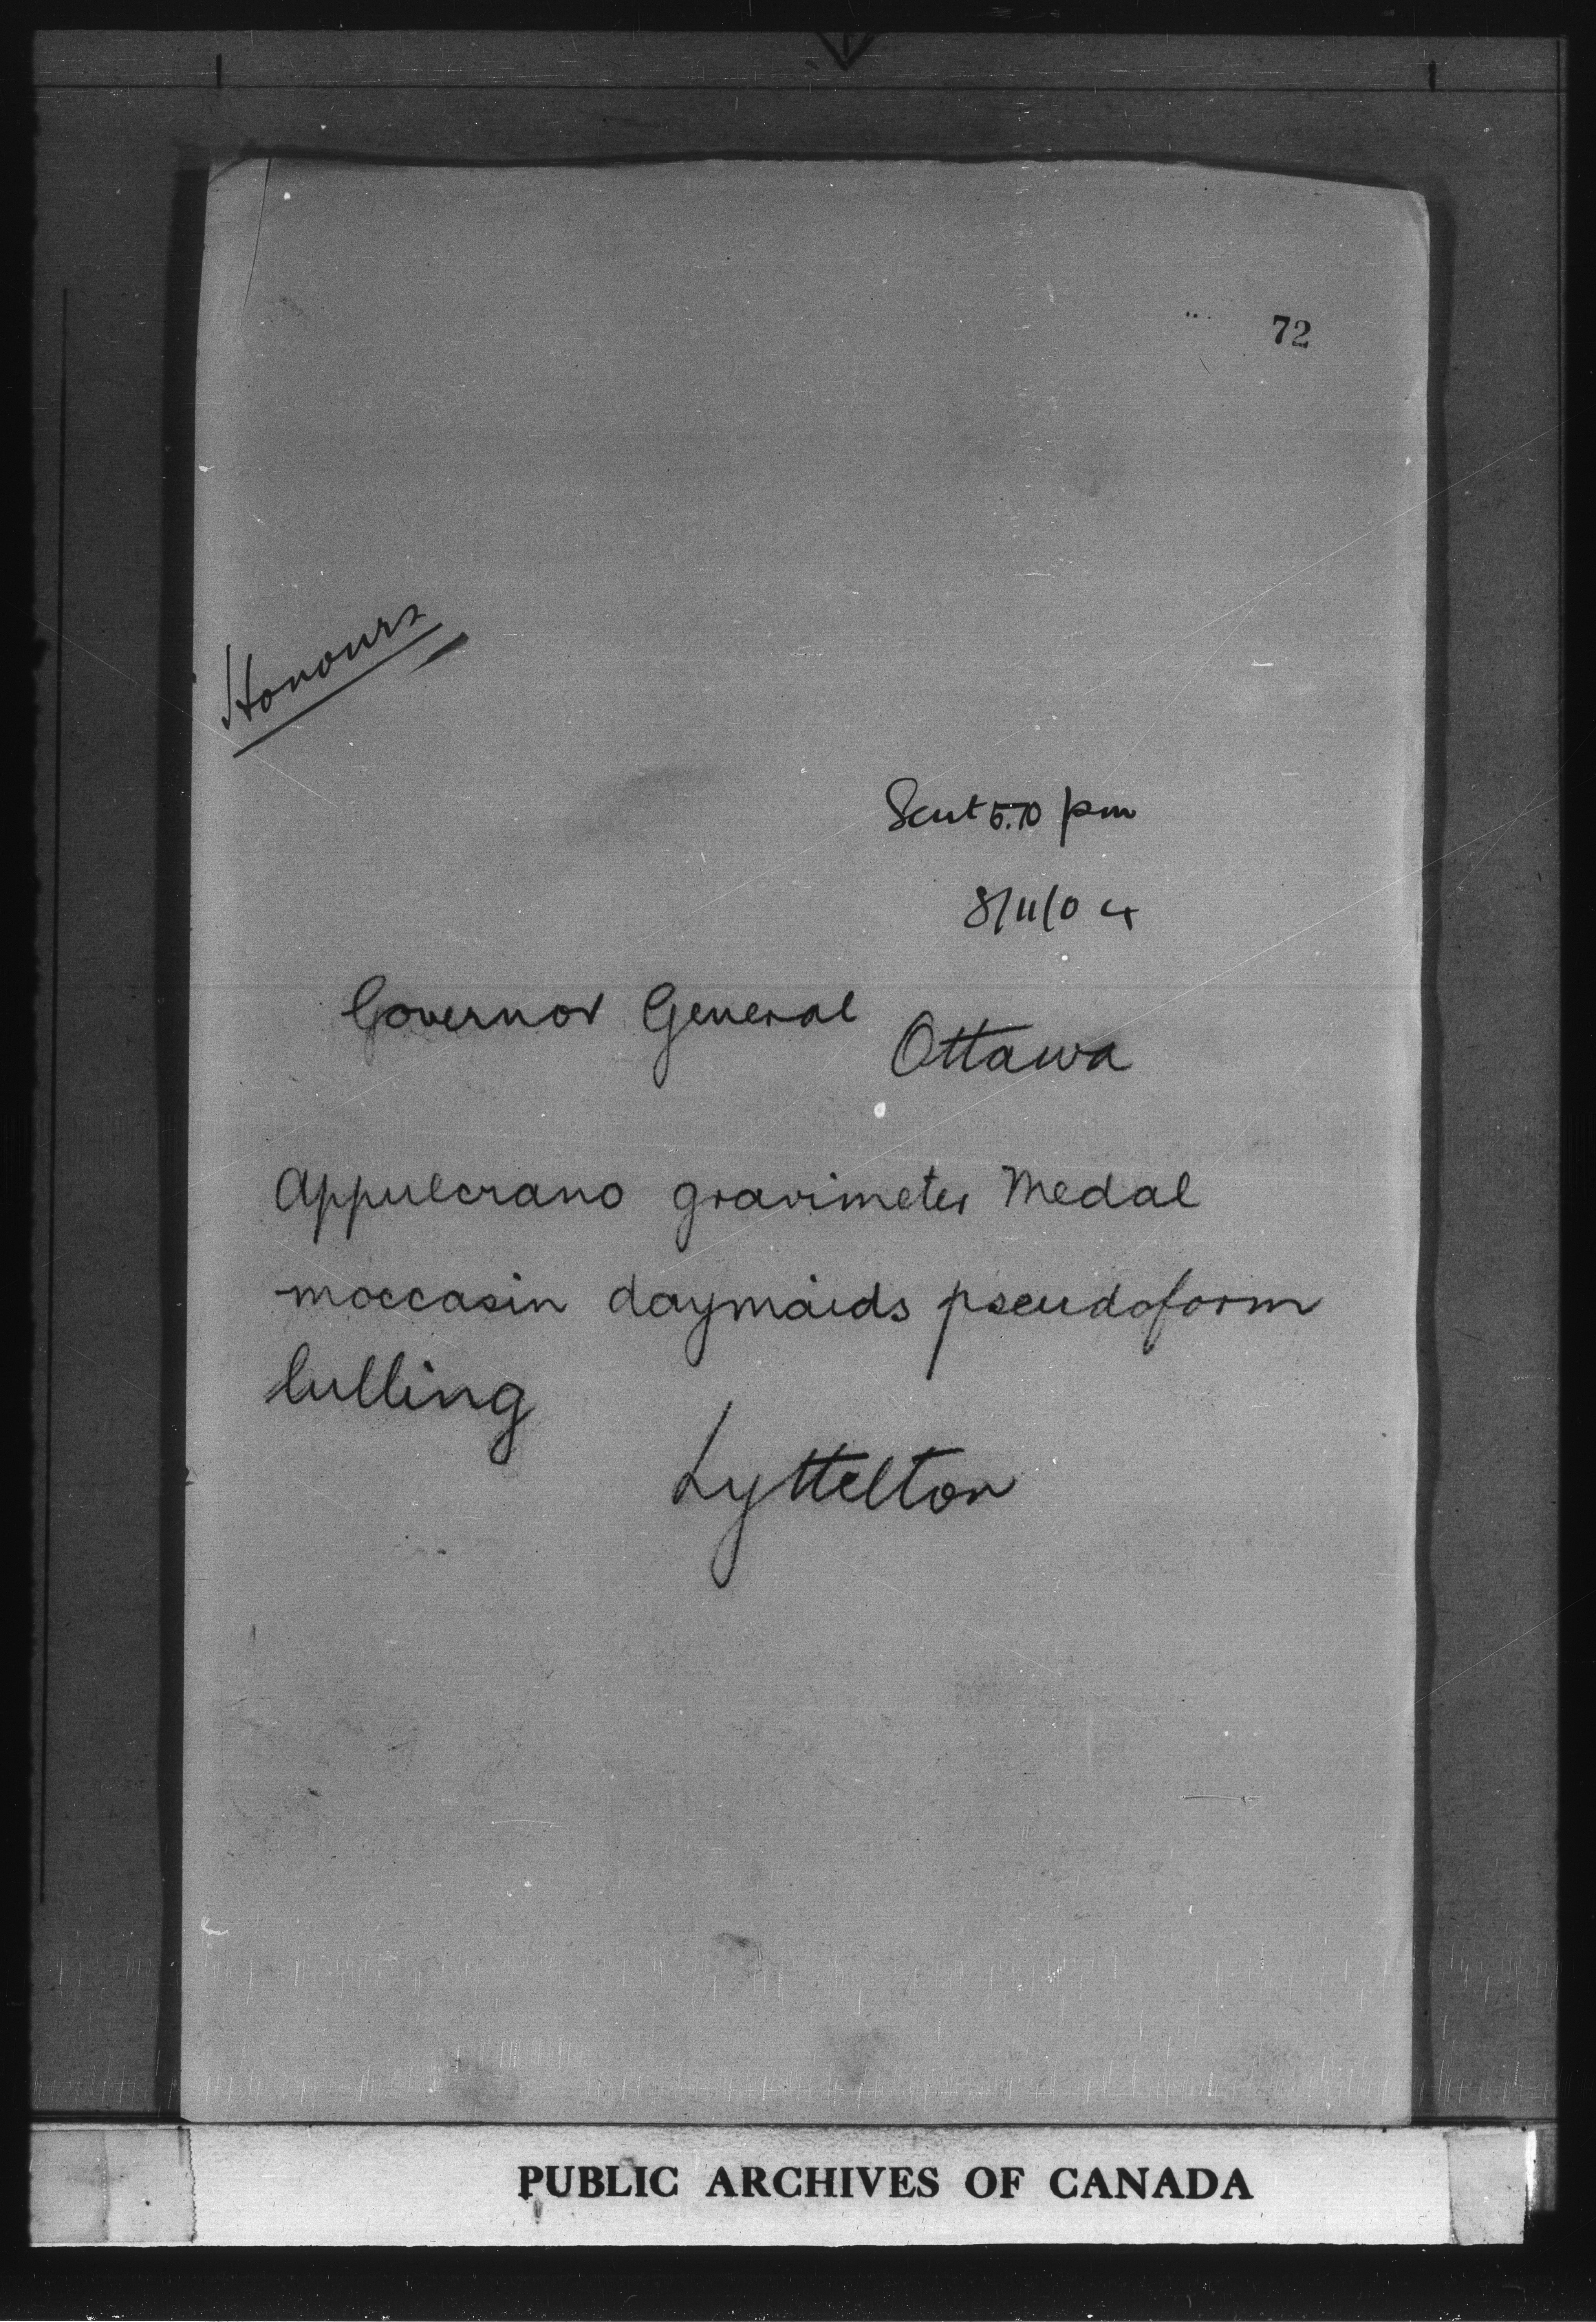 72
Honours
Sent 5.10 pm
8/11/04
Governor General
Ottawa
Appulcrano gravimeter Medal
moccasin daymaids pseudoform
lulling
Lyttelton
PUBLIC ARCHIVES OF CANADA